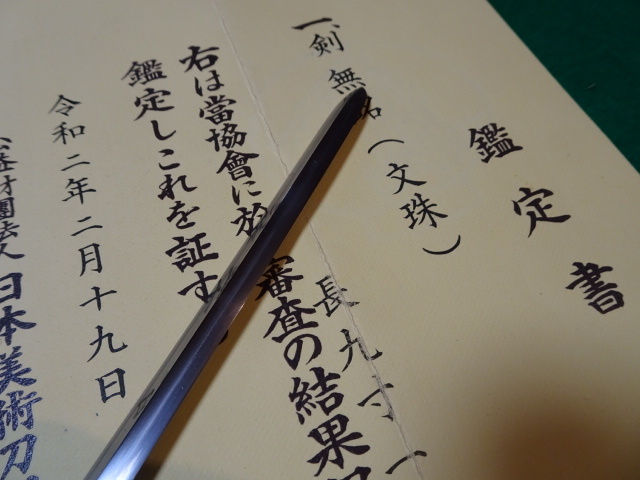 鑑定書
一、剣 無名（文珠）
長九寸一
右は當協會に於 審査の結果
鑑定しこれを証す
令和二年二月十九日
公益財團法人 日本美術刀